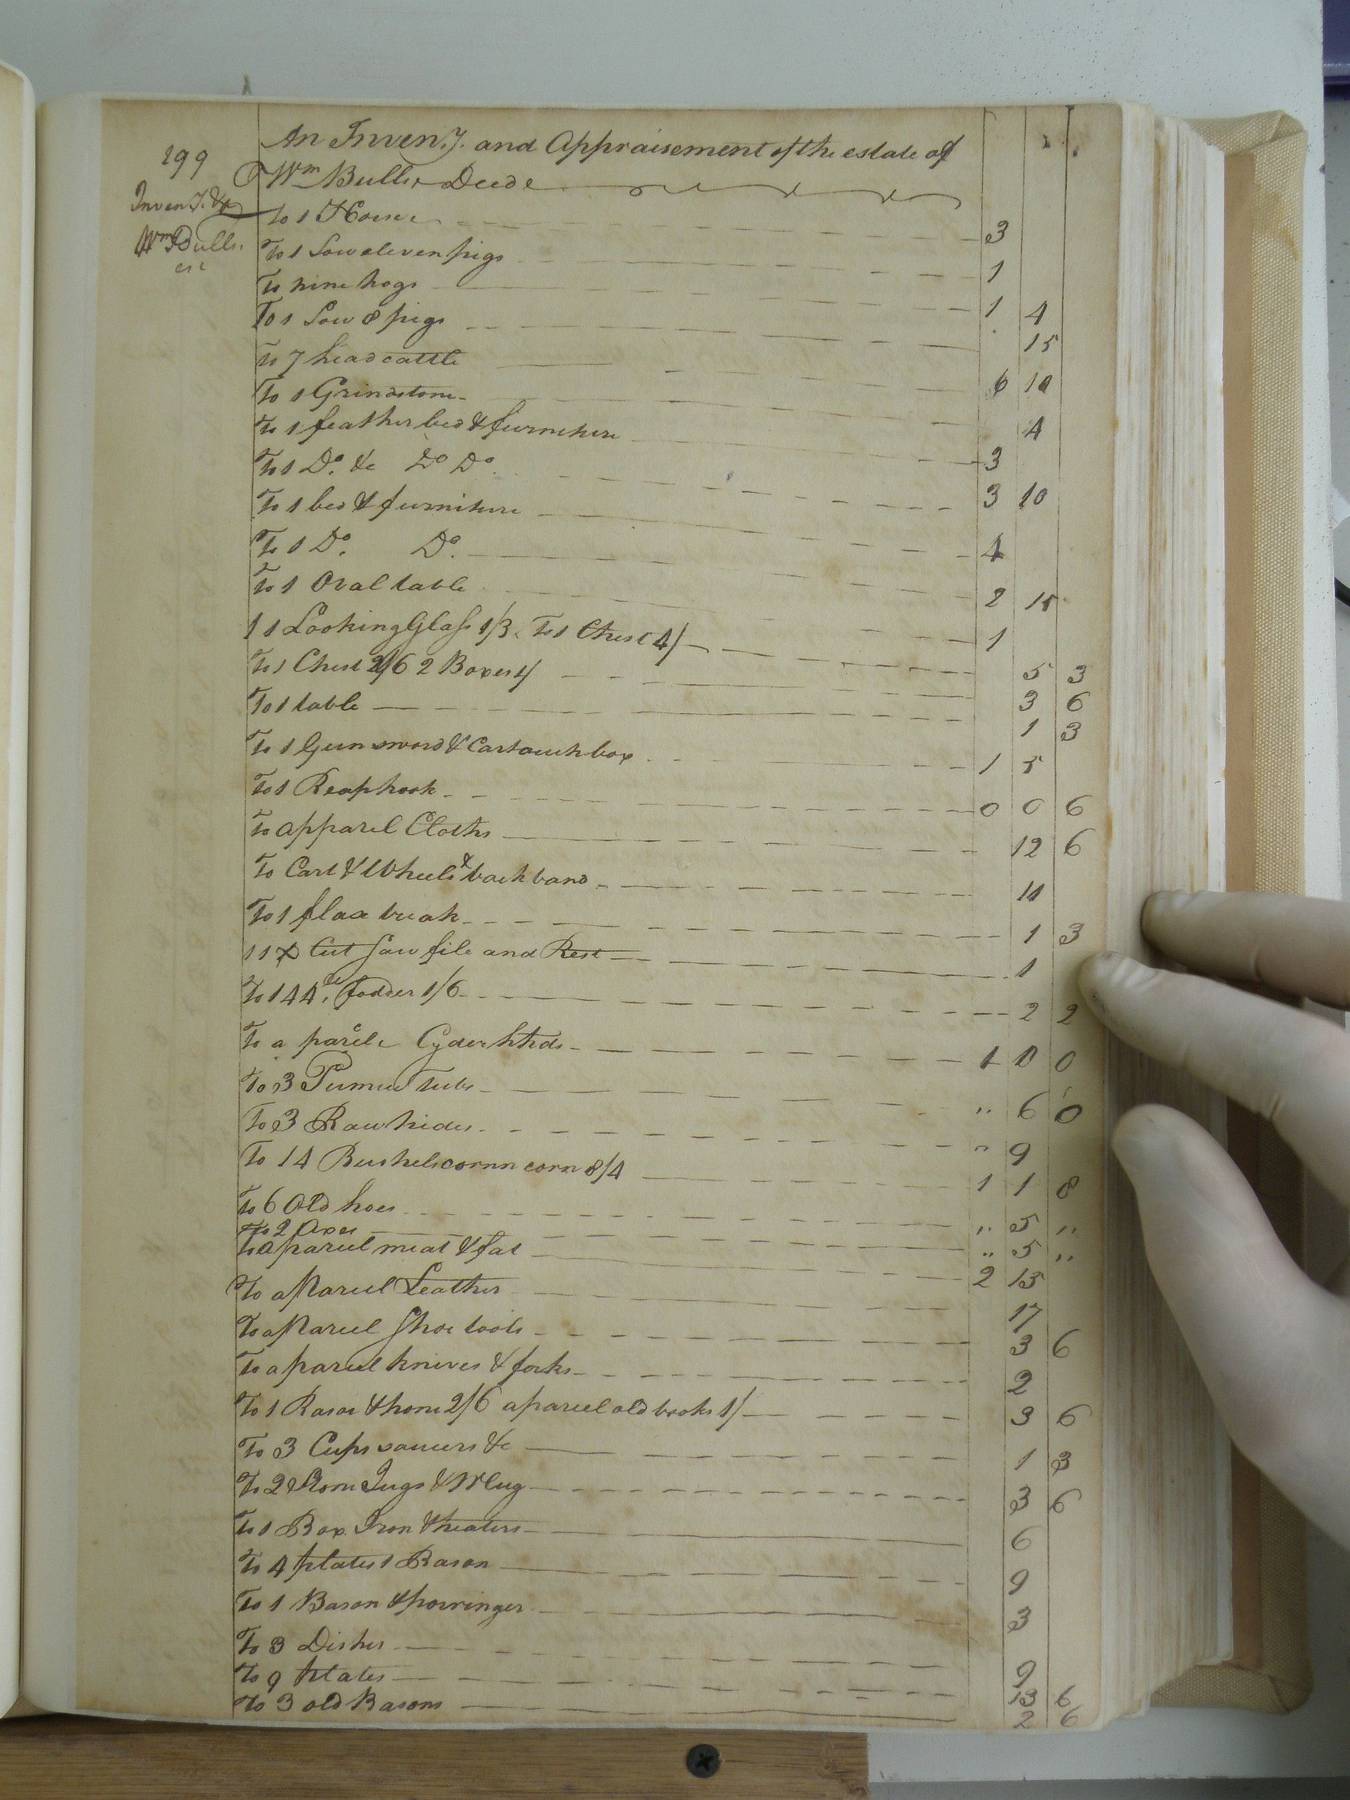 An Inveny. and Appraisement of the estate of
299
Wm Buller Decde
Inveny. &c
Wm Bulls.
est
To 1 Horse 3
To 1 Sow eleven pigs 1
To nine hogs 1 4
To 1 Sow 8 pigs 15
To 7 head cattle 6 10
To 1 Grindstone 4
To 1 feather bed & furniture 3
To 1 Do. &c Do Do 3 10
To 1 bed & furniture 4
To 1 Do. Do. 2 15
To 1 Oval table 1
1 1 Looking Glass 1/3. To 1 Chest 4/ 5 3
To 1 Chest 2/6 2 Boxes 1/ 3 6
To 1 table 1 3
To 1 Gun sword & Cartouch box 1 5
To 1 Reaphook 0 0 6
To apparel Cloths 12 6
To Cart & Wheels & back band 10
To 1 flax break 1 3
1 1 X Cut Saw file and Rest 1
To 144 le. Fodder 1/6 2 2
To a parcele Cyder hhds 1 10 0
To 3 Pumice Tubs " 6 0
To 3 Raw hides " 9
To 14 Bushels cornn corn 8/4 1 1 8
To 6 Old hoes " 5 "
To 2 Axes " 5 "
To a parcel meat & fat 2 15
To a Parcel Leather 17
To a Parcel Shoe tools 3 6
To a parcel knives & forks 2
To 1 Rasor & hone 2/6 a parcel old books 1/ 3 6
To 3 Cups saucers &c 1 3
To 2 Stone Jugs & Mug 3 6
To 1 Box Iron & heaters 6
To 4 plates 1 Bason 9
To 1 Bason & porringer 3
To 3 Dishes 9
To 9 plates 13 6
To 3 old Basons 2 6